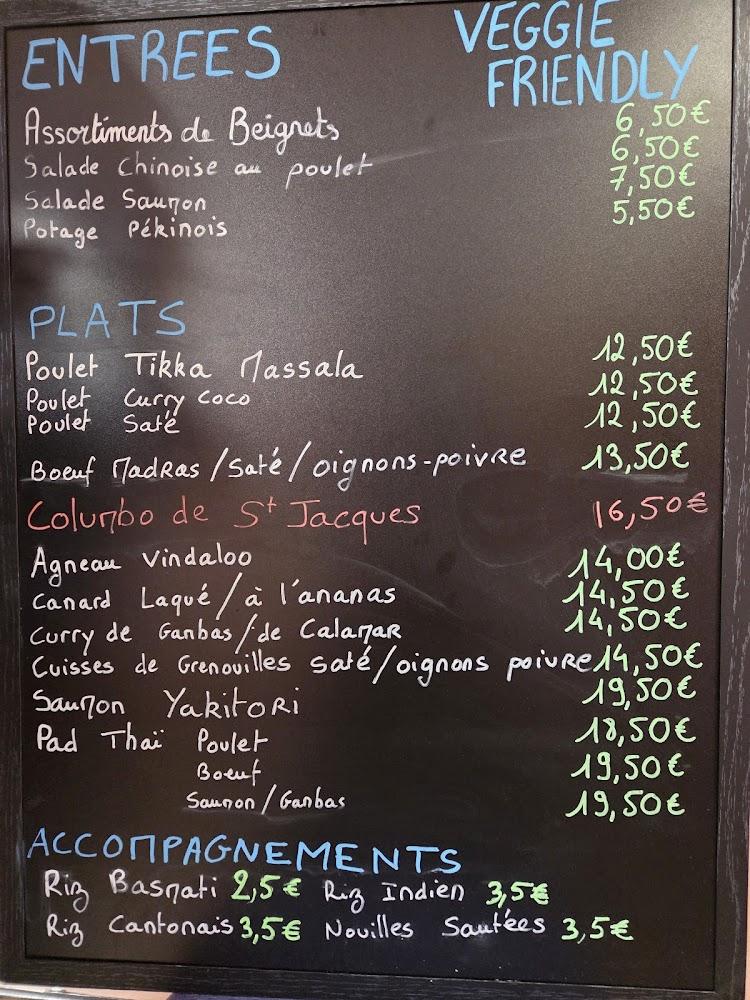 ENTREES
VEGGIE
FRIENDLY
Assortiments de Beignets 6,50€
Salade Chinoise au poulet 6,50€
Salade Saumon 7,50€
Potage Pékinois 5,50€
PLATS
Poulet Tikka Massala 12,50€
Poulet Curry coco 12,50€
Poulet Saté 12,50€
Boeuf Madras/Saté/oignons-poivre 13,50€
Columbo de St Jacques 16,50€
Agneau Vindaloo 14,00€
Canard Laqué/à l'ananas 14,50€
Curry de Ganbas/de Calamar 14,50€
Cuisses de Grenouilles Saté/oignons poivre 14,50€
Saumon Yakitori 19,50€
Pad Thaï Poulet 18,50€
Boeuf 19,50€
Saumon/Ganbas 19,50€
ACCOMPAGNEMENTS
Riz Basmati 2,5€ Riz Indien 3,5€
Riz Cantonais 3,5€ Nouilles Sautées 3,5€